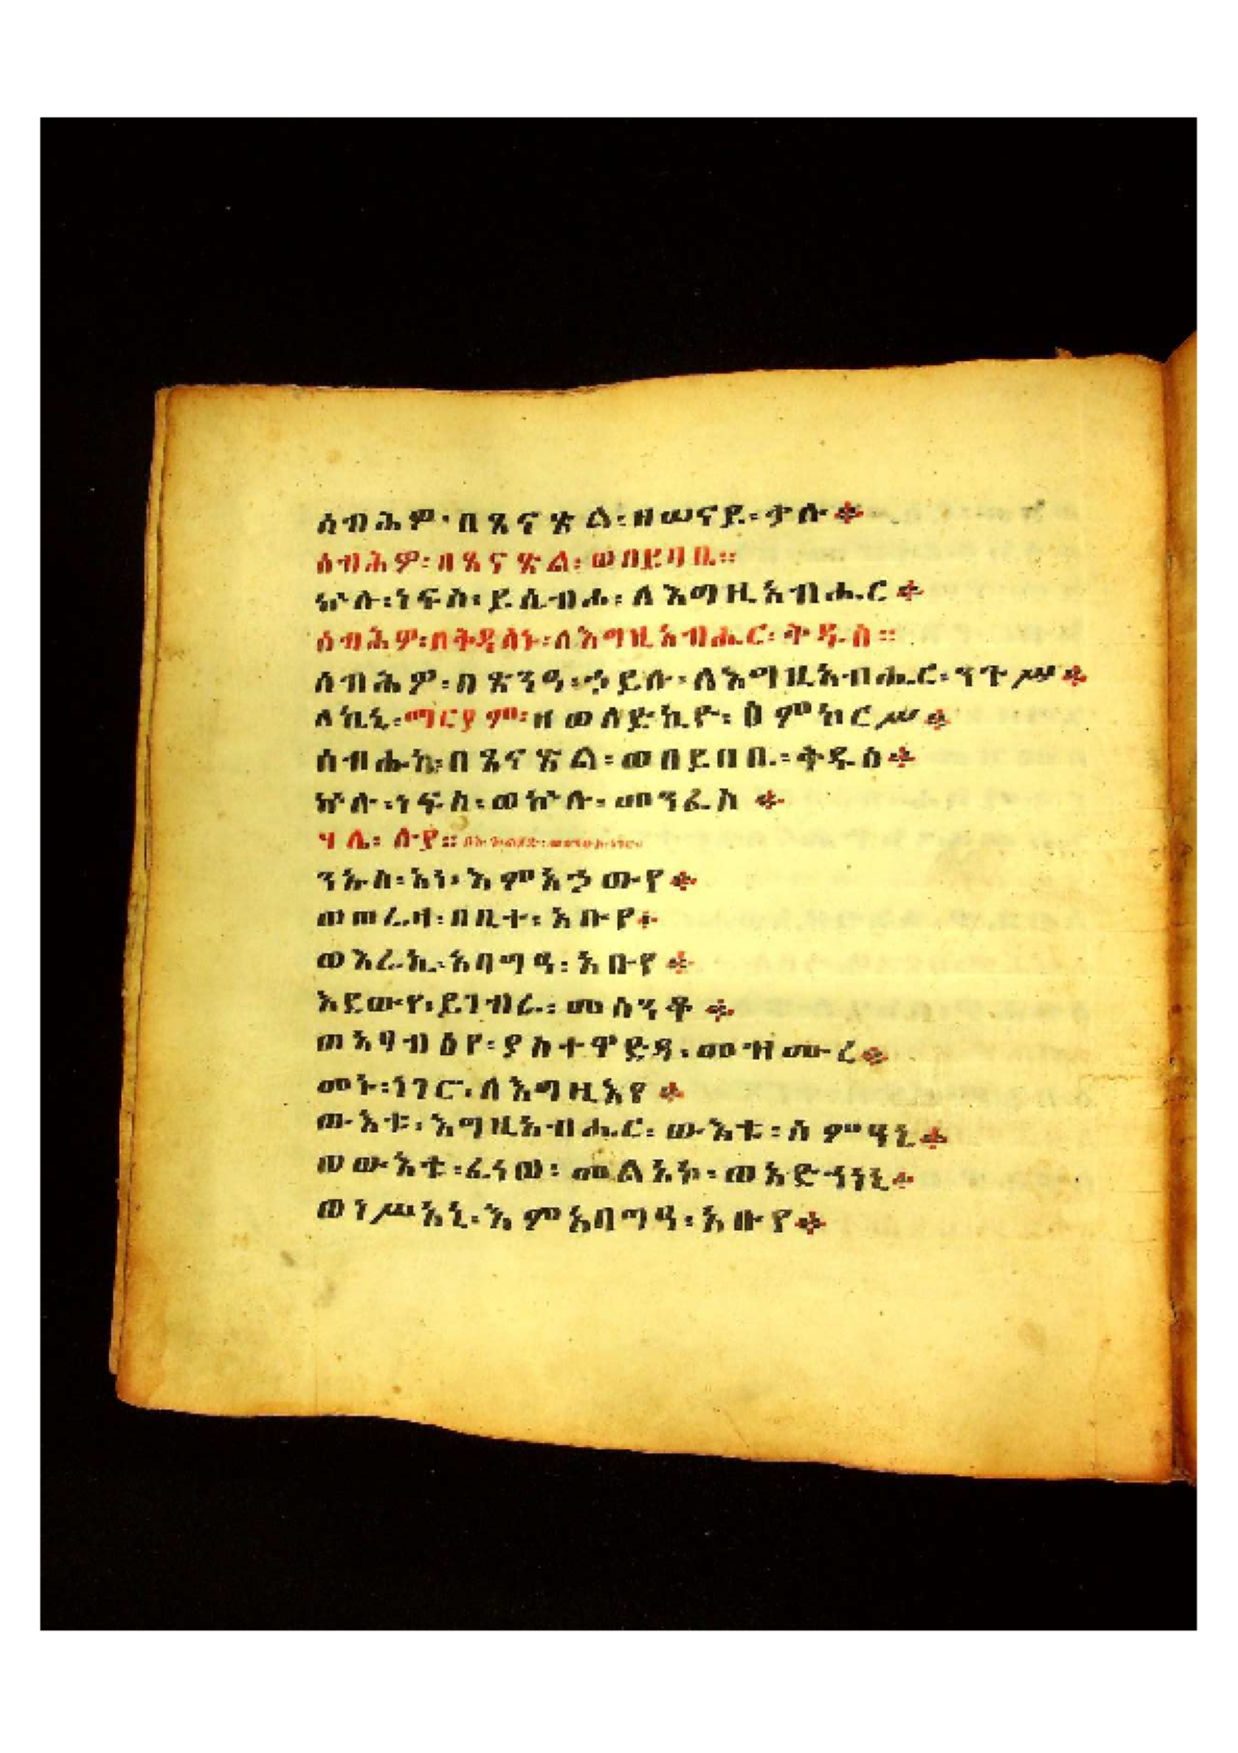 ሰብሕዎ፡በጸናጽል፡ዘሠናይ፡ቃሉ።
ሰብሕዎ፡በጸናጽል፡ወበይባቤ።
ኵሉ፡ነፍስ፡ይሴብሖ፡ለእግዚአብሔር።
ሰብሕዎ፡በቅዱሳኑ፡ለእግዚአብሔር፡ቅዱስ።
ሰብሕዎ፡በጽንዓ፡ኃይሉ፡ለእግዚአብሔር፡ንጉሥ።
ለኪኒ፡ማርያም፡ዘወለድኪዮ፡በምክርሥ።
ሰብሑከ፡በጸናጽል፡ወበይባቤ፡ቅዱስ።
ኵሉ፡ነፍስ፡ወኵሉ፡መንፈስ።
ሃሌ፡ሉያ።
ንኡስ፡አነ፡እምአኃውየ።
ወወሬዛ፡በቤተ፡አቡየ።
ወእሬኢ፡አባግዓ፡አቡየ።
እደውየ፡ይገብራ፡መሰንቆ።
ወአፃብዕየ፡ያስተዋድዳ፡መዝሙረ።
መኑ፡ነገሮ፡ለእግዚእየ።
ውእቱ፡እግዚአብሔር፡ውእቱ፡ሰምዓኒ።
ወውእቱ፡ፈነወ፡መልአኮ፡ወአድኀነኒ።
ወነሥአኒ፡እምአባግዓ፡አቡየ።